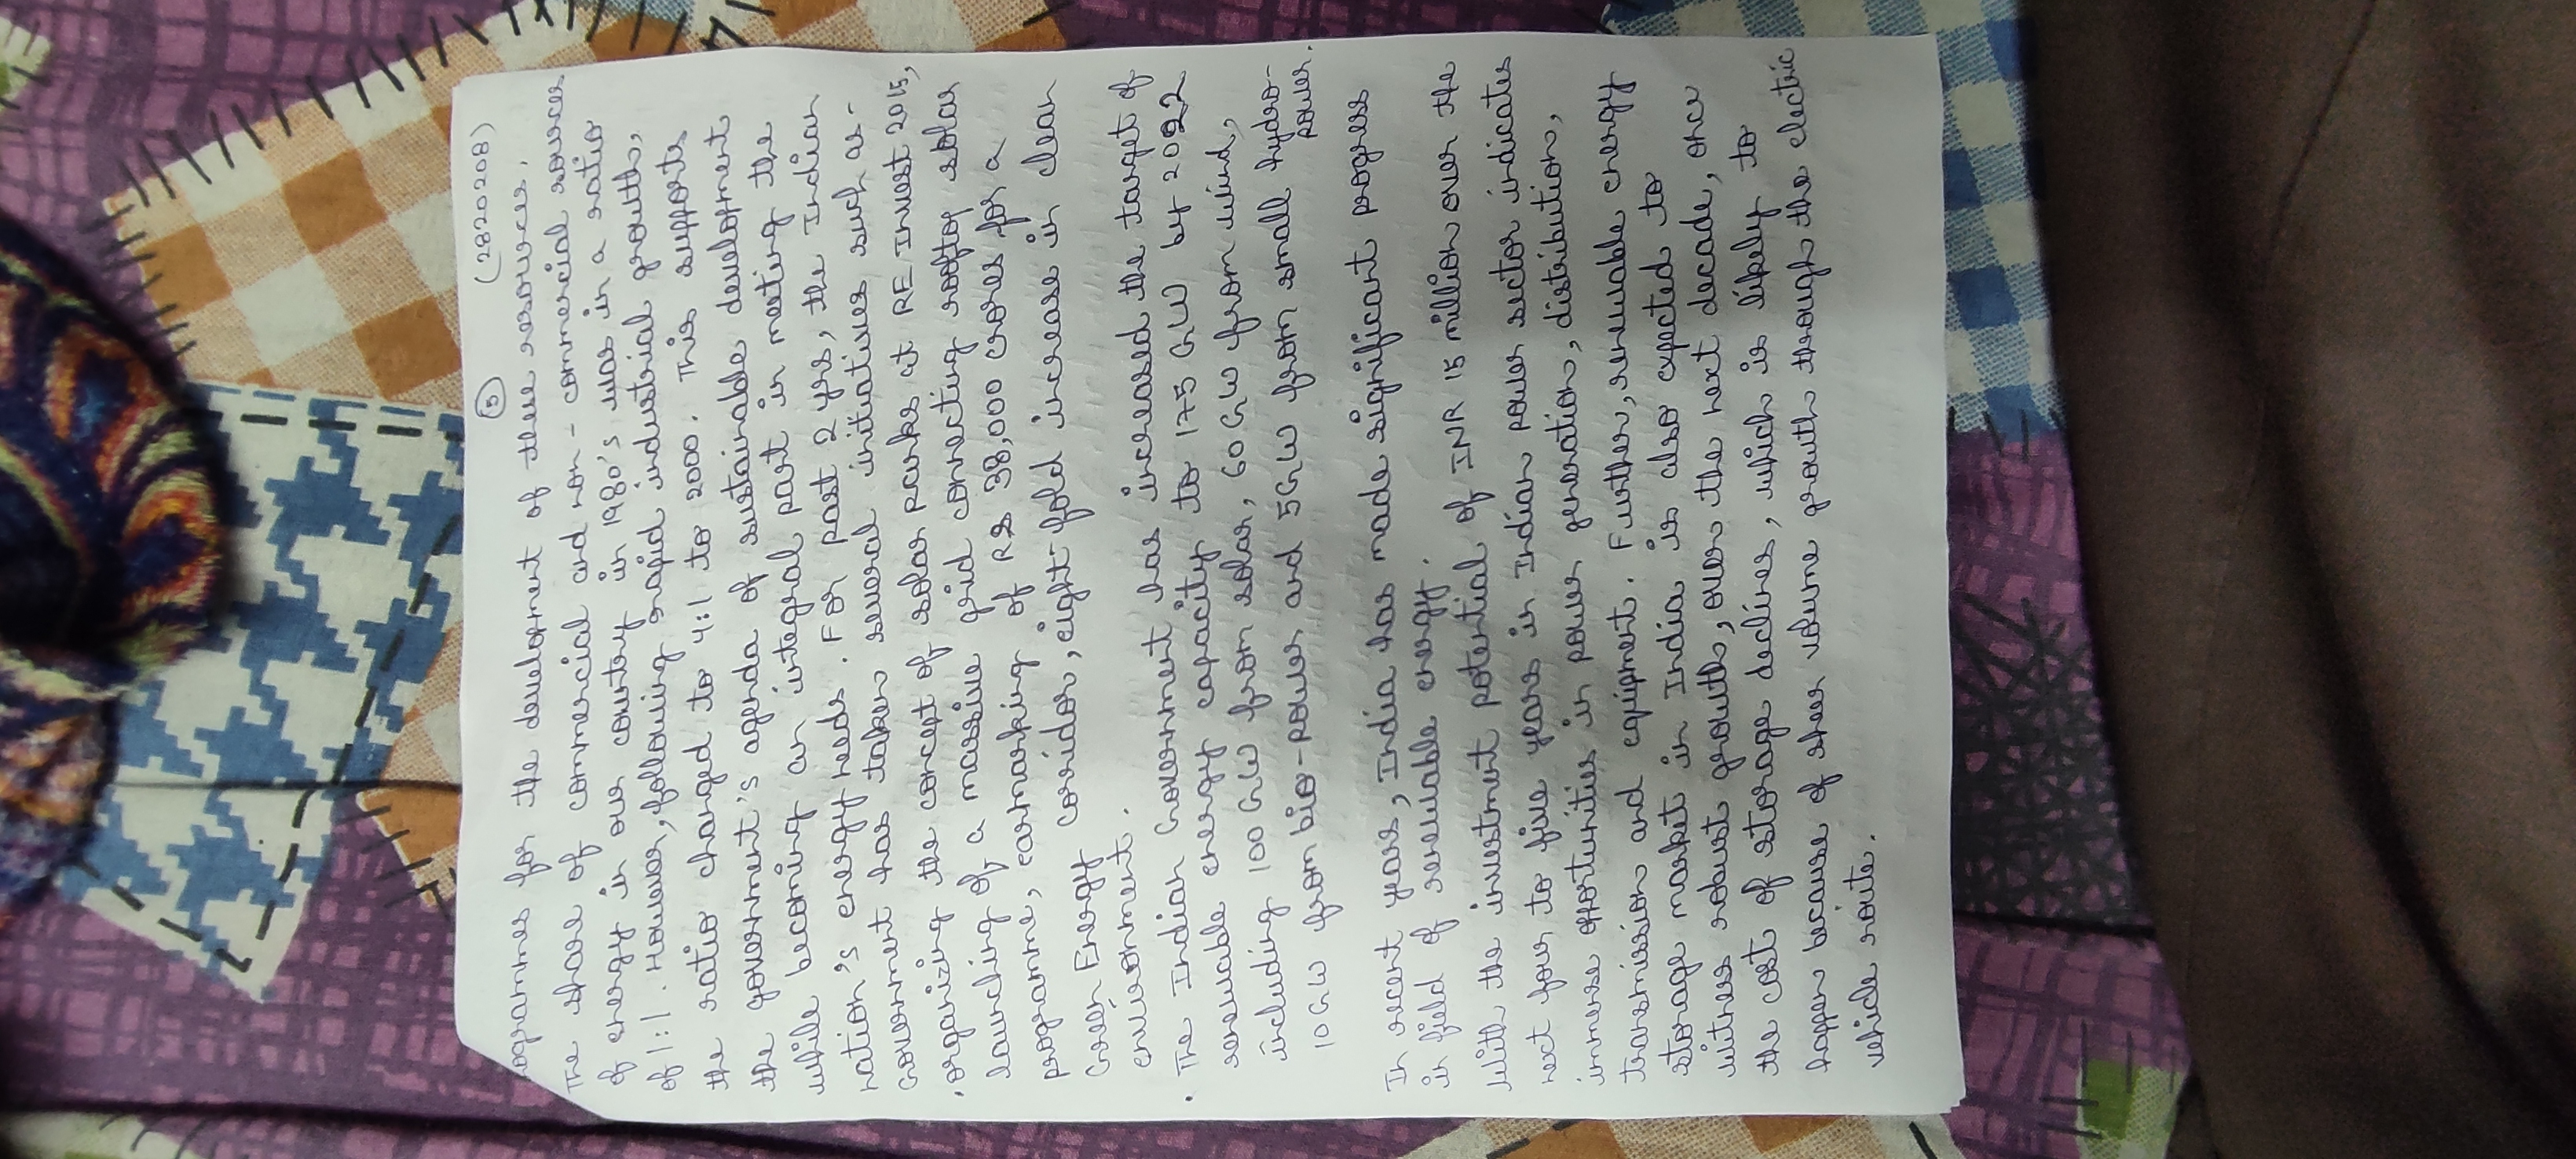 5 (2820208)
ogrammes for the development of these resources.
The share of commercial and non-commercial sources
of energy in our country in 1980's was in a ratio
of 1:1. However, following rapid industrial growth,
the ratio changed to 4:1 to 2000. This supports
the government's agenda of sustainable development
while becoming an integral part in meeting the
nation's energy needs. For past 2 yrs, the Indian
Government has taken several initiatives such as-
• organizing the concept of solar parks at RE Invest 2015,
launching of a massive grid connecting rooftop solar
programme, earmarking of RS 38,000 crores for a
Green Energy corridor, eight-fold increase in clean
environment.
• The Indian Government has increased the target of
renewable energy capacity to 175 GW by 2022
including 100 GW from solar, 60 GW from wind,
10 GW from bio-power and 5GW from small hydro-
power.
In recent years, India has made significant progress
in field of renewable energy.
With the investment potential of INR 15 million over the
next four to five years in Indian power sector indicates
immense opportunities in power generation, distribution,
transmission and equipment. Further, renewable energy
storage market in India is also expected to
witness robust growth, over the next decade, once
the cost of storage declines, which is likely to
happen because of sheer volume growth through the electric
vehicle route.